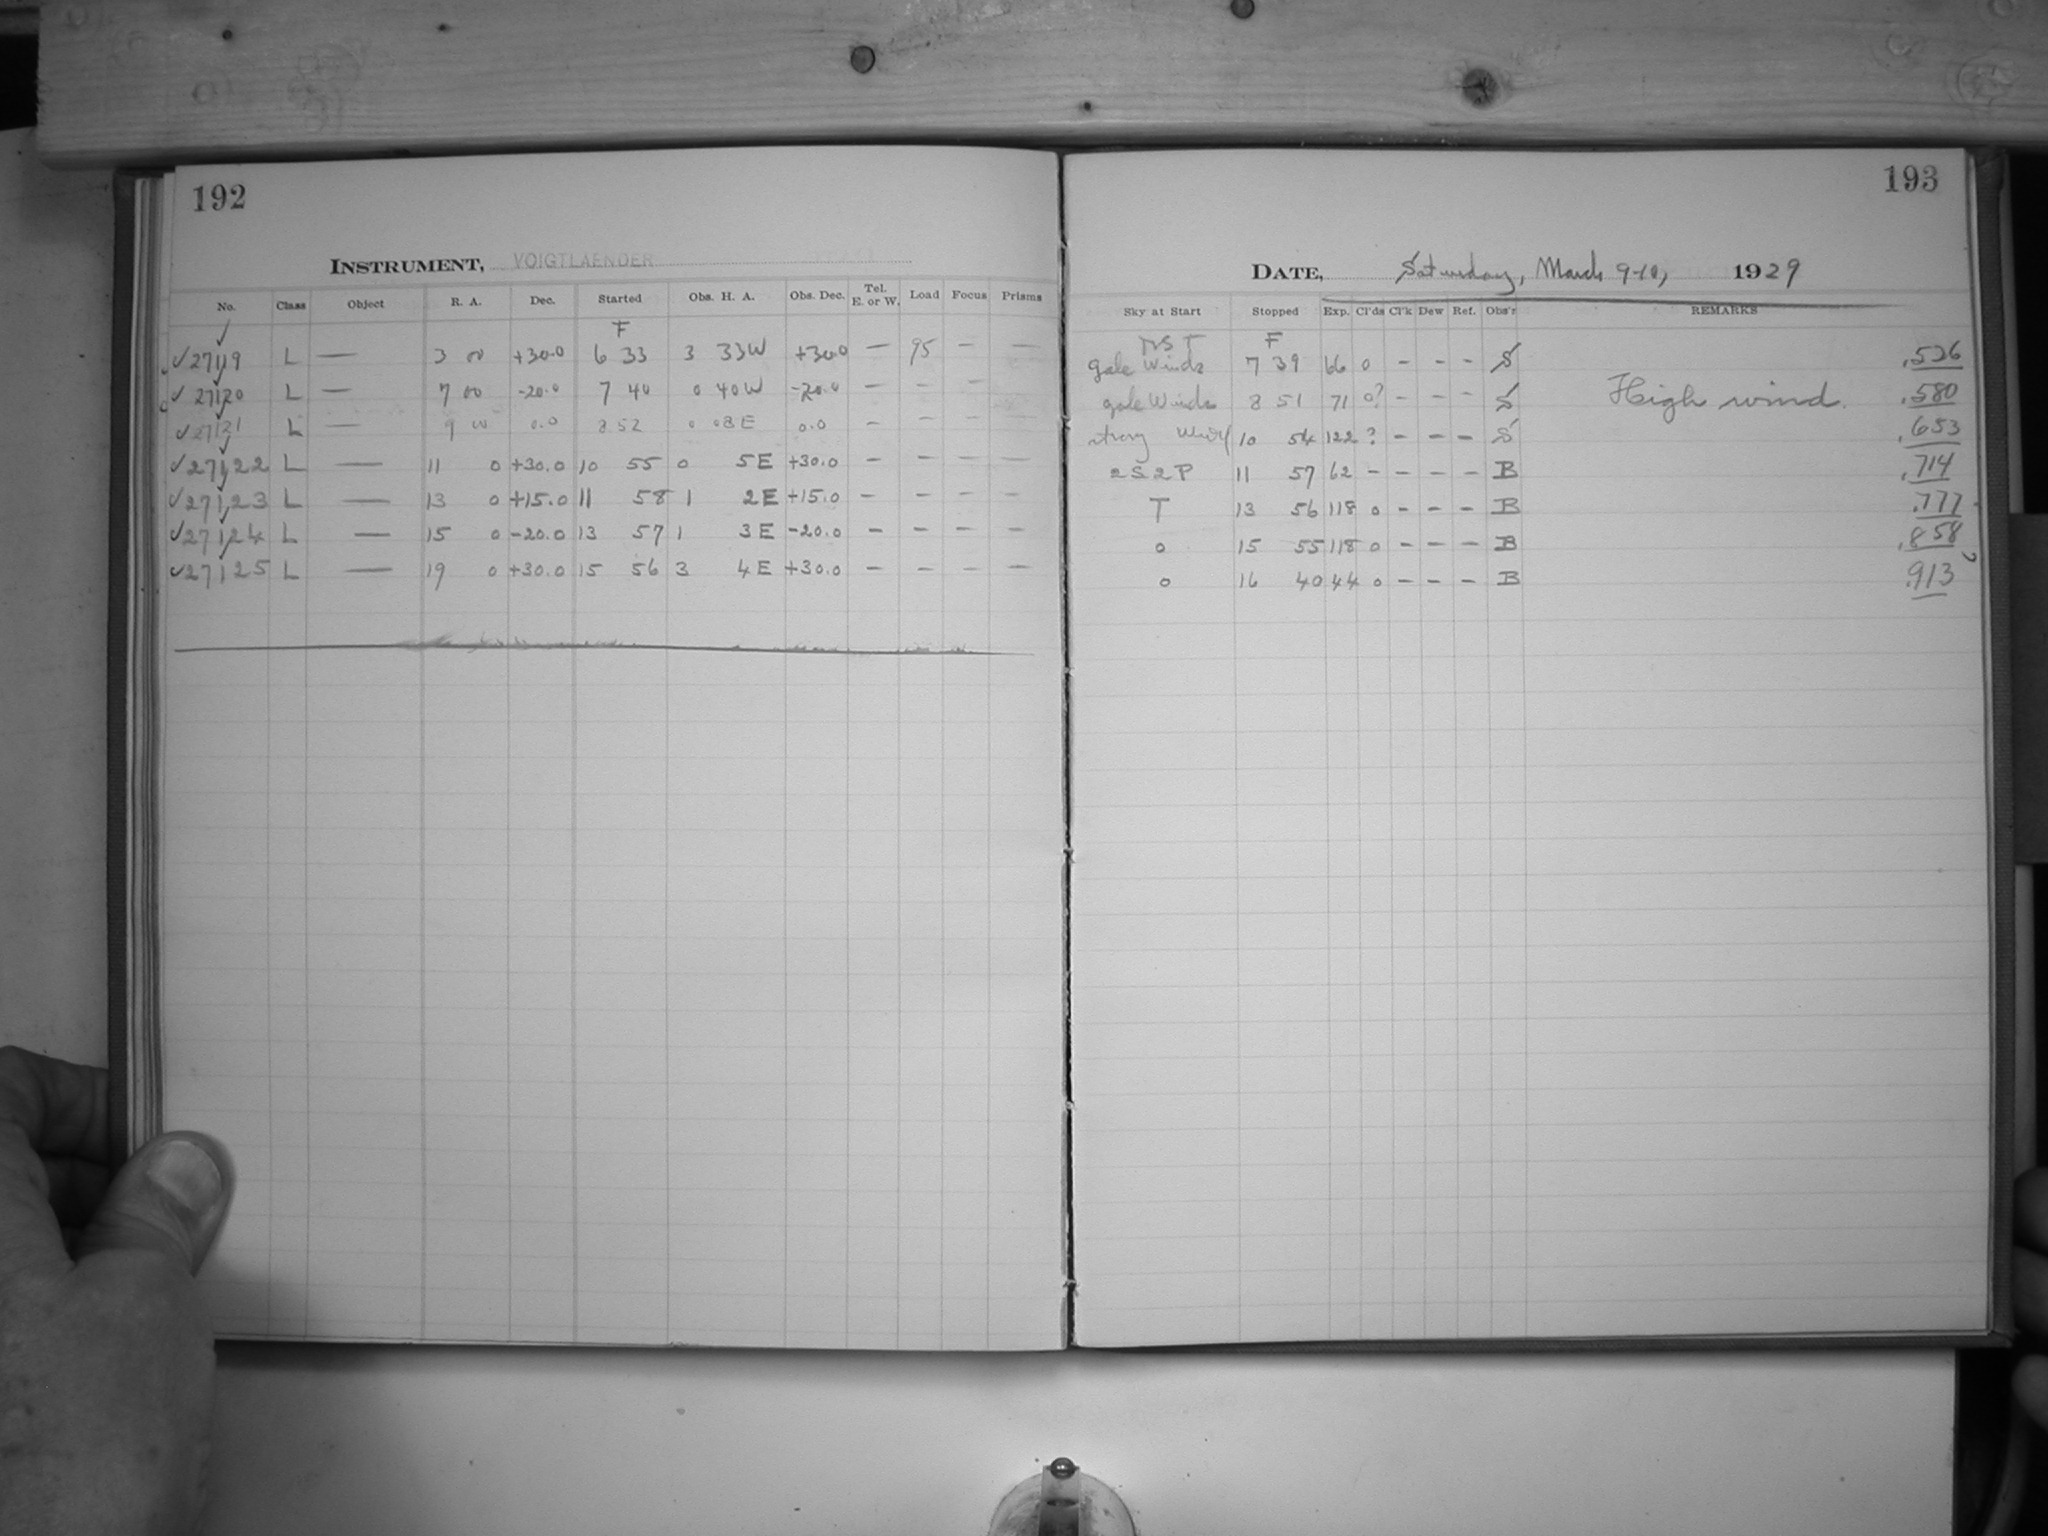 192
INSTRUMENT, VOIGTLAENDER
No. Class Object R. A. Dec. Started Obs. H. A. Obs. Dec. Tel. E. or W. Load Focus Prisms
✓ F
✓27119 L — 3 00 +30.0 6 33 3 33W +30.0 — 95 — —
✓27120 L — 7 00 -20.0 7 40 0 40W -20.0 — — — —
✓27121 L — 9 00 0.0 8 52 0 08E 0.0 — — — —
✓27122 L — 11 0 +30.0 10 55 0 5E +30.0 — — — —
✓27123 L — 13 0 +15.0 11 58 1 2E +15.0 — — — —
✓27124 L — 15 0 -20.0 13 57 1 3E -20.0 — — — —
✓27125 L — 19 0 +30.0 15 56 3 4E +30.0 — — — —
193
DATE, Saturday, March 9-10, 1929
Sky at Start Stopped Exp. Cl'ds Cl'k Dew Ref. Obs'r REMARKS
F
gale Winds 7 39 66 0 - - - S .526
gale Winds 8 51 71 0? - - - S High wind. .580
strong Wind 10 54 122 ? - - - S .653
2S2P 11 57 62 - - - - B .714
T 13 56 118 0 - - - B .777
0 15 55 118 0 - - - B .858
0 16 40 44 0 - - - B .913